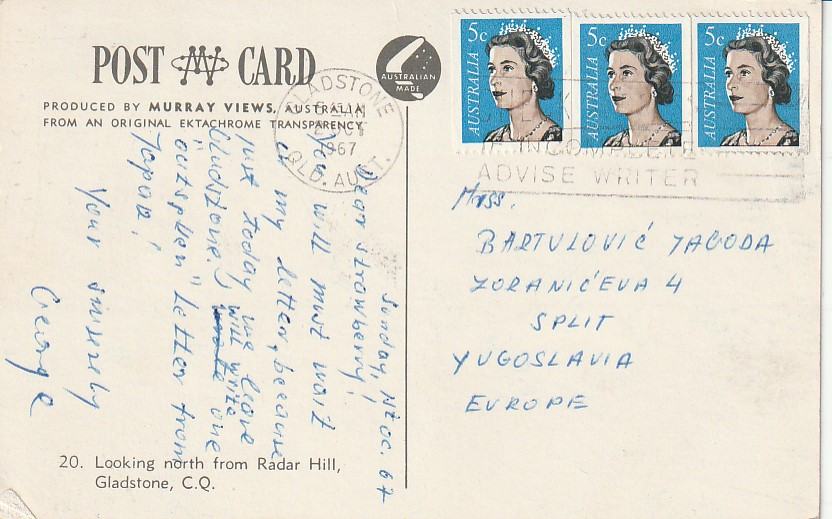 POST CARD
AUSTRALIAN
MADE
PRODUCED BY MURRAY VIEWS, AUSTRALIA
FROM AN ORIGINAL EKTACHROME TRANSPARENCY.
GLADSTONE
1967
QLD. AUST.
5c
AUSTRALIA
5c
AUSTRALIA
5c
AUSTRALIA
INCOMPLETE
ADVISE WRITER
Sunday, oc. 67
Dear strawberry!
You will must wait
on my letter, because
just today we leave
Gladstone. I will write one
"outspken" letter from
Japan!
Your sinserely
George
Miss.
BARTULOVIĆ JAGODA
ZORANIĆEVA 4
SPLIT
YUGOSLAVIA
EUROPE
20. Looking north from Radar Hill,
Gladstone, C.Q.